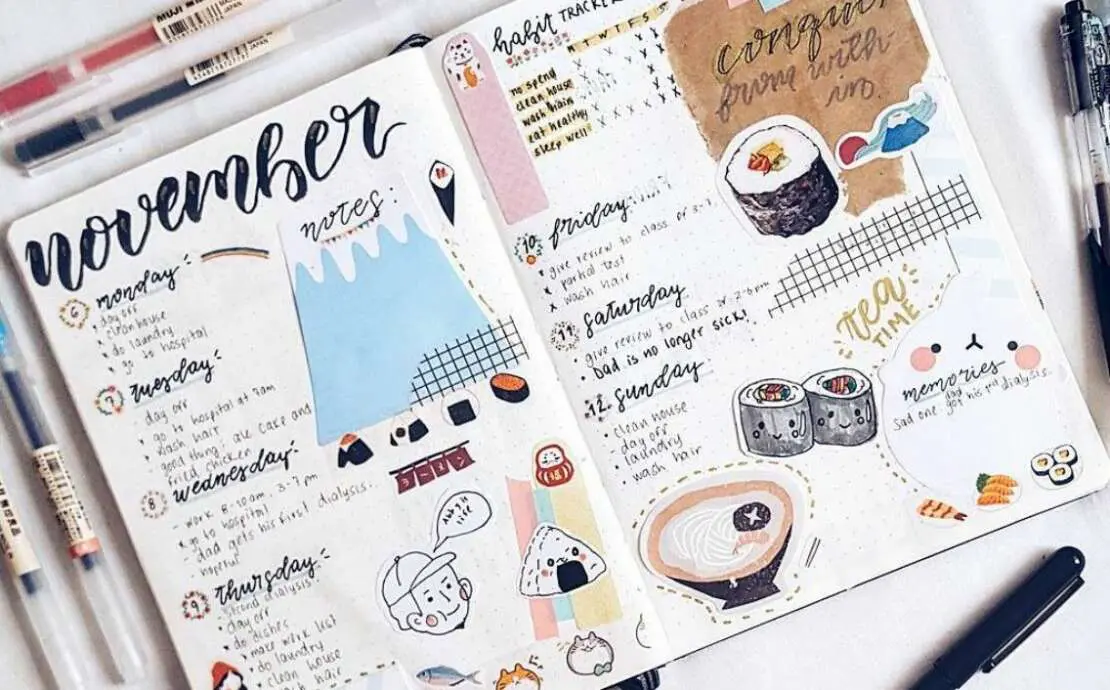 MUJI
JAPAN
JAPAN
november
notes:
6
monday
day off
clean house
do laundry
go to hospital
7
tuesday
day off
go to hospital at 7am
wash hair
good thing: ate cake and
fried chicken
8
wednesday
- work 8-10am, 3-7pm
go to hospital
- dad gets his first dialysis.
hopeful
9
thursday
second dialysis
day off
do dishes
make work list
do laundry
clean house
wash hair
habit TRACKER
M T W T F S S
no spend
clean house
wash hair
eat healthy
sleep well
conquer
from with
in.
10
friday:
x give review to class
x partial test
x wash hair
11
saturday
give review to class
• Dad is no longer sick!
12.
sunday
• clean house
- day off
• laundry
wash hair
tea
TIME
memories
Sad one: dad got his 1st dialysis.